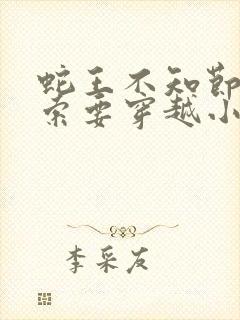 蛇王不知节
索要穿越小
李采友